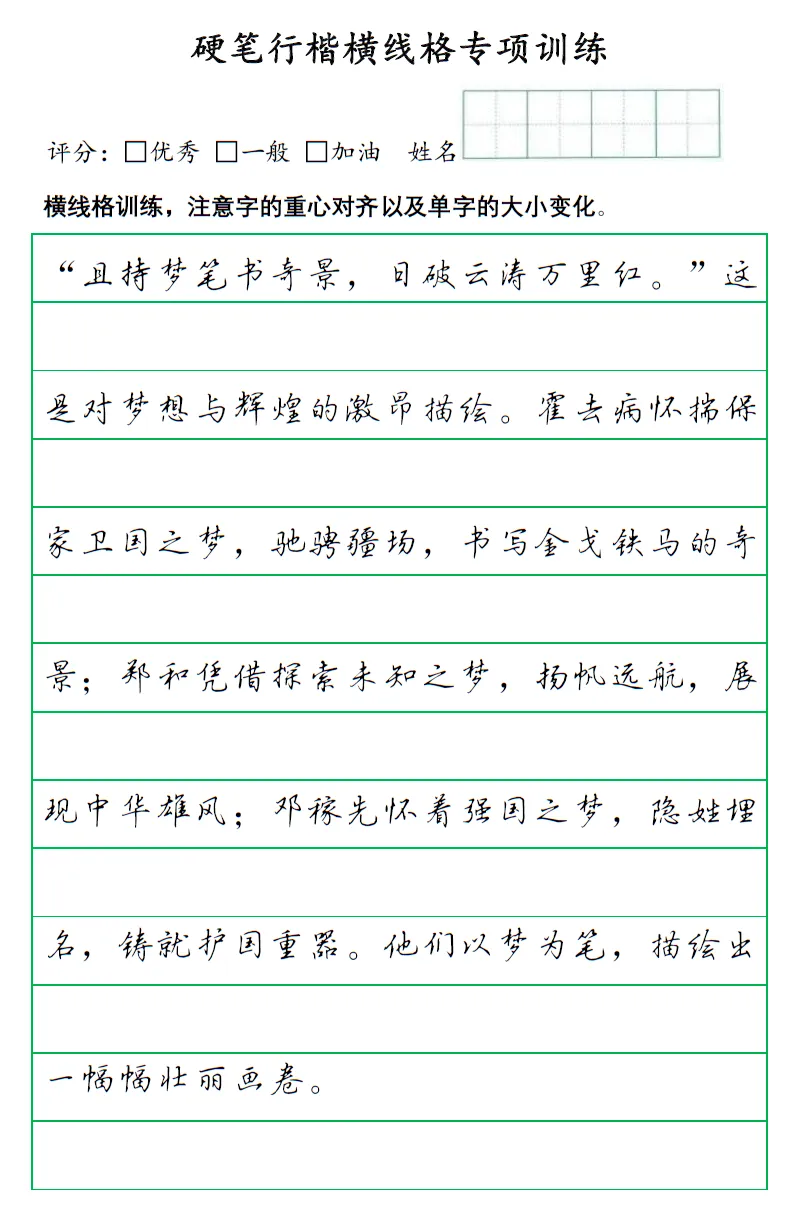 硬笔行楷横线格专项训练
评分：□优秀 □一般 □加油 姓名
横线格训练，注意字的重心对齐以及单字的大小变化。
“且持梦笔书奇景，日破云涛万里红。”这
是对梦想与辉煌的激昂描绘。霍去病怀揣保
家卫国之梦，驰骋疆场，书写金戈铁马的奇
景；郑和凭借探索未知之梦，扬帆远航，展
现中华雄风；邓稼先怀着强国之梦，隐姓埋
名，铸就护国重器。他们以梦为笔，描绘出
一幅幅壮丽画卷。